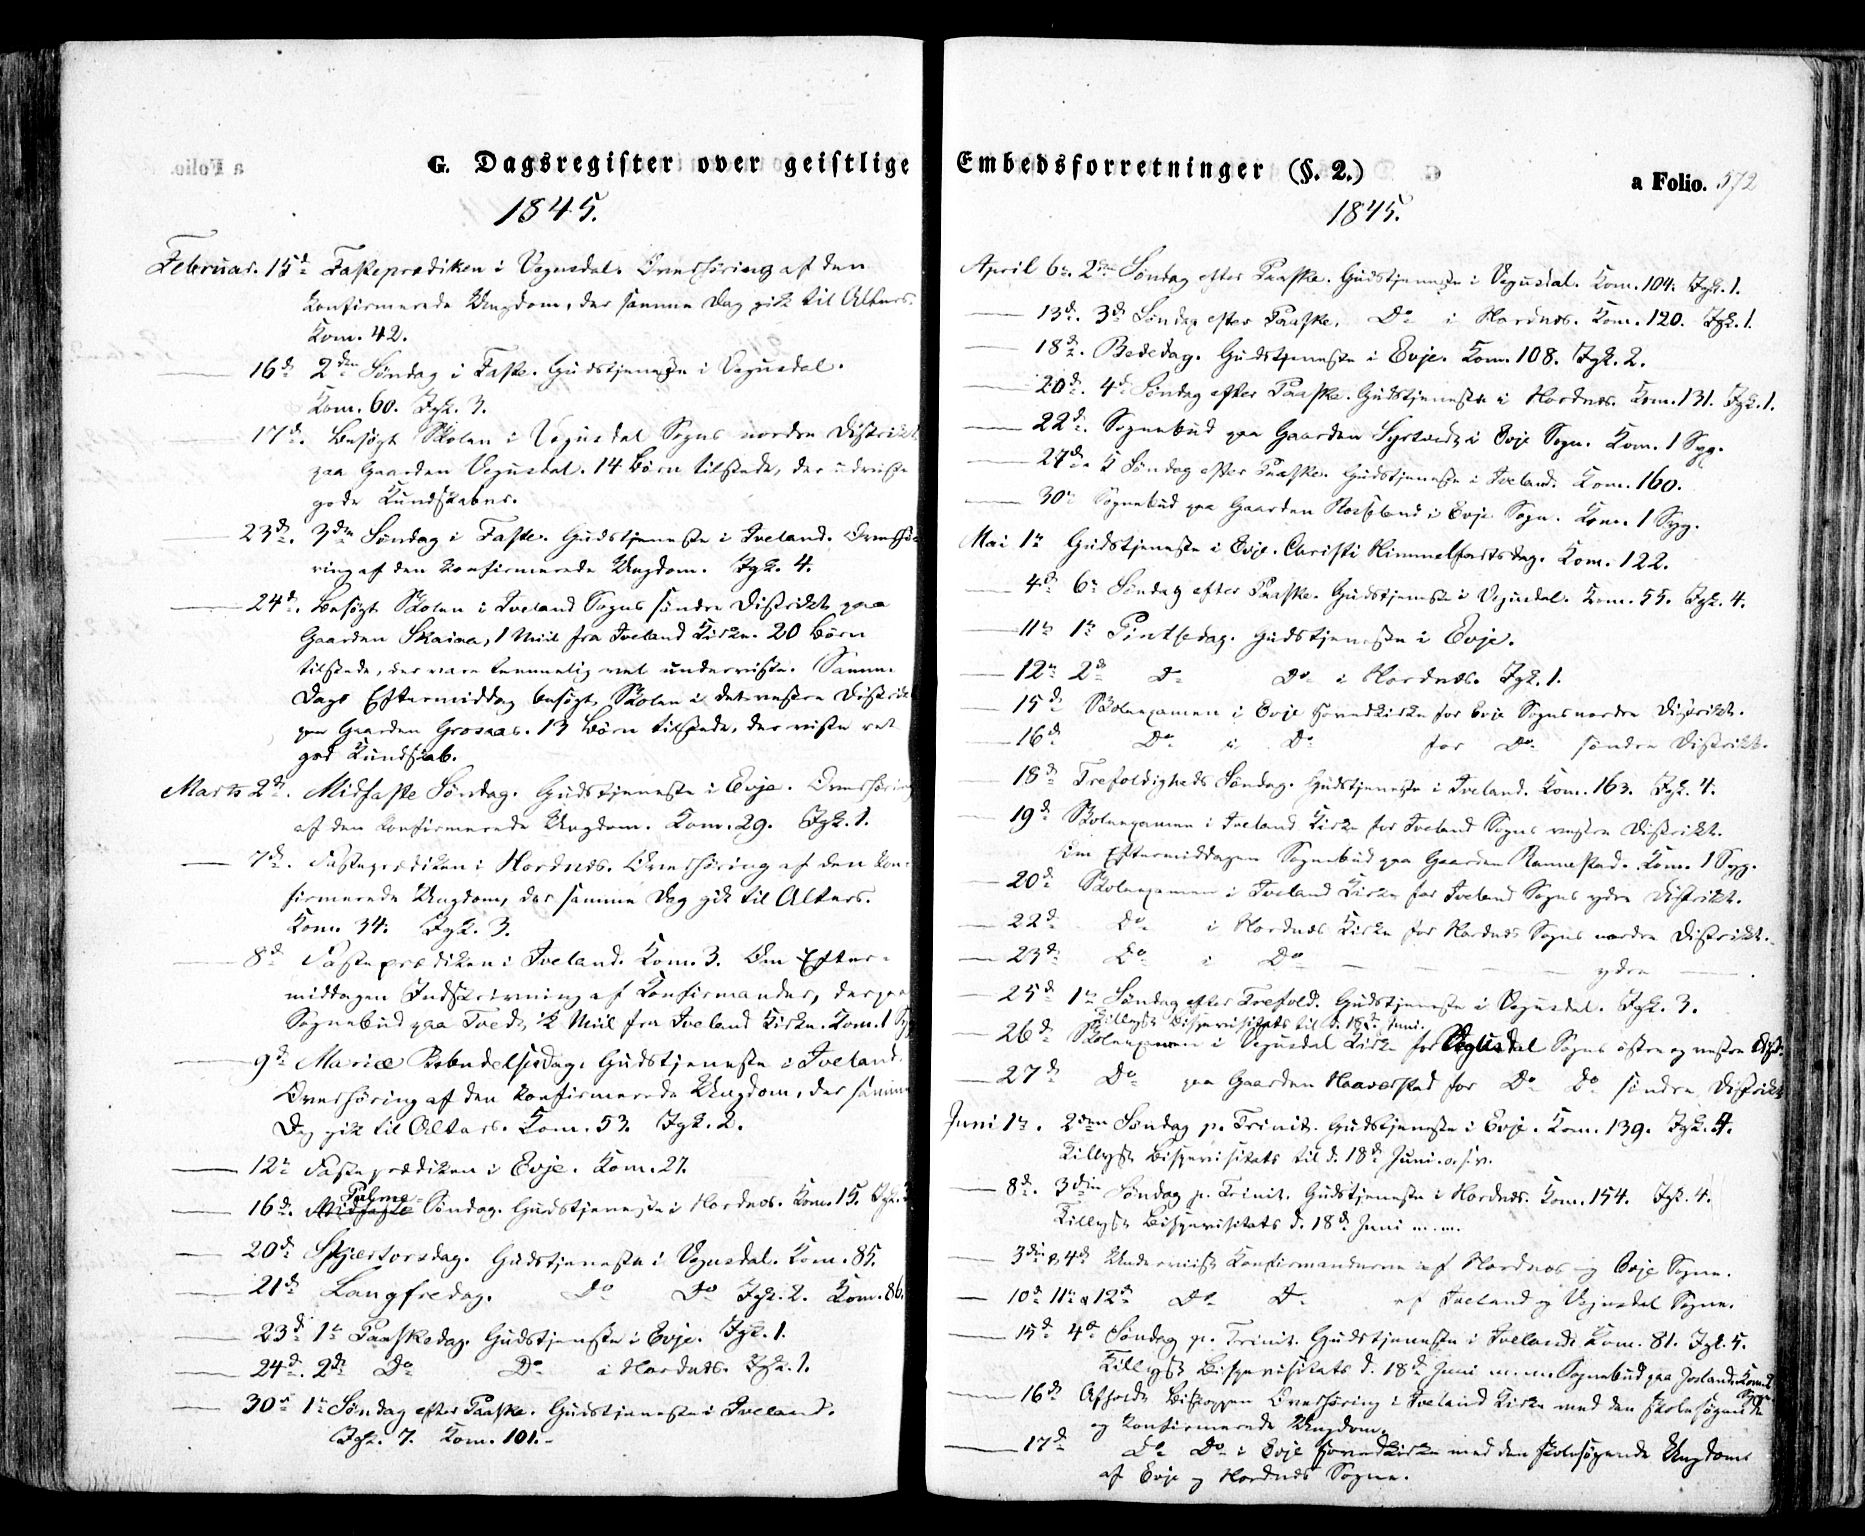 G. Dagsregister over geistlige
1845.
Februar. 15d Fasteprædiken i Vegusdal. Overhøring af den
konfirmerede Ungdom, der samme Dag gik til Alters.
Kom. 42.
16d 2den Søndag i Faste. Gudstjeneste i Vegusdal.
Kom. 60. Igk. 3.
17d. Besøgt Skolen i Vegusdal Sogns nordre Distrikt
paa Gaarden Vegusdal. 14 Børn tilstede, der udviste
gode Kundskaber.
23d. 3den Søndag i Faste. Gudstjeneste i Iveland. Overhø-
ring af den konfirmerede Ungdom. Igk. 4.
24d. Besøgt Skolen i Iveland Sogns søndre Distrikt paa
Gaarden Skaiaa, 1 Miil fra Iveland Kirke. 20 Børn
tilstede, der vare temmelig vel underviste. Samme
Dags Eftermiddag besøgt Skolen i det vestre Distrikt
paa Gaarden Grosaas. 13 Børn tilstede, der viste ret
god Kundskab.
Marts 2den. Midfaste Søndag. Gudstjeneste i Evje. Overhøring
af den konfirmerede Ungdom. Kom. 29. Igk. 1.
7d. Fasteprædiken i Hordnæs. Overhøring af den kon-
firmerede Ungdom, der samme Dag gik til Alters.
Kom. 34. Igk. 3.
8d Fasteprædiken i Iveland. Kom. 3. Om Efter-
middagen Indskrivning af Konfirmander, derpaa
Sognebud paa Tvedt, ½ Miil fra Iveland Kirke. Kom. 1 Syg
9d Mariæ Bebudelsesdag. Gudstjeneste i Iveland.
Overhøring af den konfirmerede Ungdom, der samme
Dag gik til Alters. Kom. 53. Igk. 2.
12te Fasteprædiken i Evje. Kom. 27.
Palme-
16d. Midfaste Søndag. Gudstjeneste i Hordnæs. Kom. 15. Igk.
20d Skjærtorsdag. Gudstjeneste i Vegusdal. Kom. 85.
21d Langfredag. Do Do Igk. 2. Kom. 86.
23d 1te Paaskedag. Gudstjeneste i Evje. Igk. 1.
24d. 2den Do Do i Hordnæs. Igk. 1.
30te 1te Søndag efter Paaske. Gudstjeneste i Iveland.
Igk. 7. Kom. 101.
Embedsforretninger (§. 2.)
a Folio. 572
1845.
April 6te. 2den Søndag efter Paaske. Gudstjeneste i Vegusdal. Kom. 104. Igk. 1.
13d. 3d Søndag efter Paaske. Do i Hordnæs. Kom. 120. Igk. 1.
18d. Bededag. Gudstjeneste i Evje. Kom. 108. Igk. 2.
20d. 4d Søndag efter Paaske. Gudstjeneste i Hordnæs. Kom. 131. Igk. 1.
22d. Sognebud paa Gaarden i Evje Sogn. Kom. 1 Syg.
27d. 5 Søndag efter Paaske. Gudstjeneste i Iveland. Kom. 160.
30te Sognebud paa Gaarden i Evje Sogn. Kom. 1 Syg.
Mai 1te Gudstjeneste i Evje. Christi Himmelfartsdag. Kom. 122.
4d 6te Søndag efter Paaske. Gudstjeneste i Vegusdal. Kom. 55. Igk. 4.
11te 1te Pintsedag. Gudstjeneste i Evje.
12te 2d Do Do i Hordnæs. Igk. 1.
15d Skoleexamen i Evje Hovedkirke for Evje Sogns nordre Distrikt.
16d Do i Do for Do søndre Distrikt.
18d Trefoldigheds Søndag. Gudstjeneste i Iveland. Kom. 163. Igk. 4.
19d Skoleexamen i Iveland Kirke for Iveland Sogns vestre Distrikt.
Om Eftermiddagen Sognebud paa Gaarden Rannestad. Kom. 1 Syg.
20d Skoleexamen i Iveland Kirke for Iveland Sogns ydre Distrikt.
22d Do i Hordnæs Kirke for Hordnæs Sogns nordre Distrikt.
23d Do i Do — — — — ydre —
25d 1te Søndag efter Trefold. Gudstjeneste i Vegusdal. Igk. 3.
Tillyst Bispevisitats til d. 18d Juni.
26d Skoleexamen i Vegusdal Kirke for Vegusdal Sogns østre og vestre Dist.
27d Do paa Gaarden Haaverstad for Do Do søndre Distrikt
Juni 1te. 2den Søndag p. Trinit. Gudstjeneste i Evje. Kom. 139. Igk. 4.
Tillyst Bispevisitats til d. 18d Juni o.s.v.
8d. 3die Søndag p. Trinit. Gudstjeneste i Hordnæs. Kom. 154. Igk. 4.
Tillyst Bispevisitats d. 18d Juni m.m.
3die & 4d Underviist Konfirmanderne af Hordnæs og Evje Sogne.
10d 11te & 12d Do Do af Iveland og Vegusdal Sogne.
15d 4d Søndag p. Trinit. Gudstjeneste i Iveland. Kom. 81. Igk. 5.
Tillyst Bispevisitats d. 18d Juni m.m. Sognebud paa Kom. 1
Syg.
16d Afholdt Biskoppen Overhøring i Iveland Kirke med den skolesøgende
og konfirmerede Ungdom.
17d Do Do i Evje Hovedkirke med den skolesøgende Ungdom
af Evje og Hordnæs Sogne.